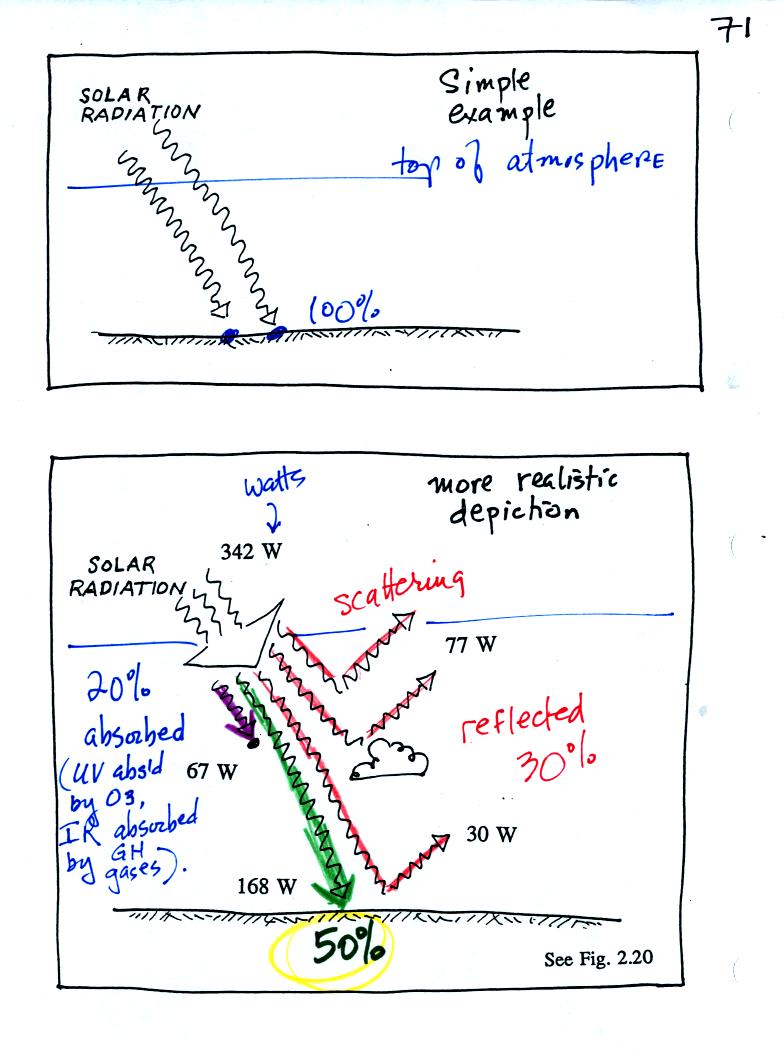 71
SOLAR
RADIATION
Simple
example
top of atmosphere
100%
watts
more realistic
depiction
342 W
SOLAR
RADIATION
scattering
77 W
20%
absorbed
(UV abs'd
by O3,
IR absorbed
by GH
gases).
67 W
reflected
30%
30 W
168 W
50%
See Fig. 2.20